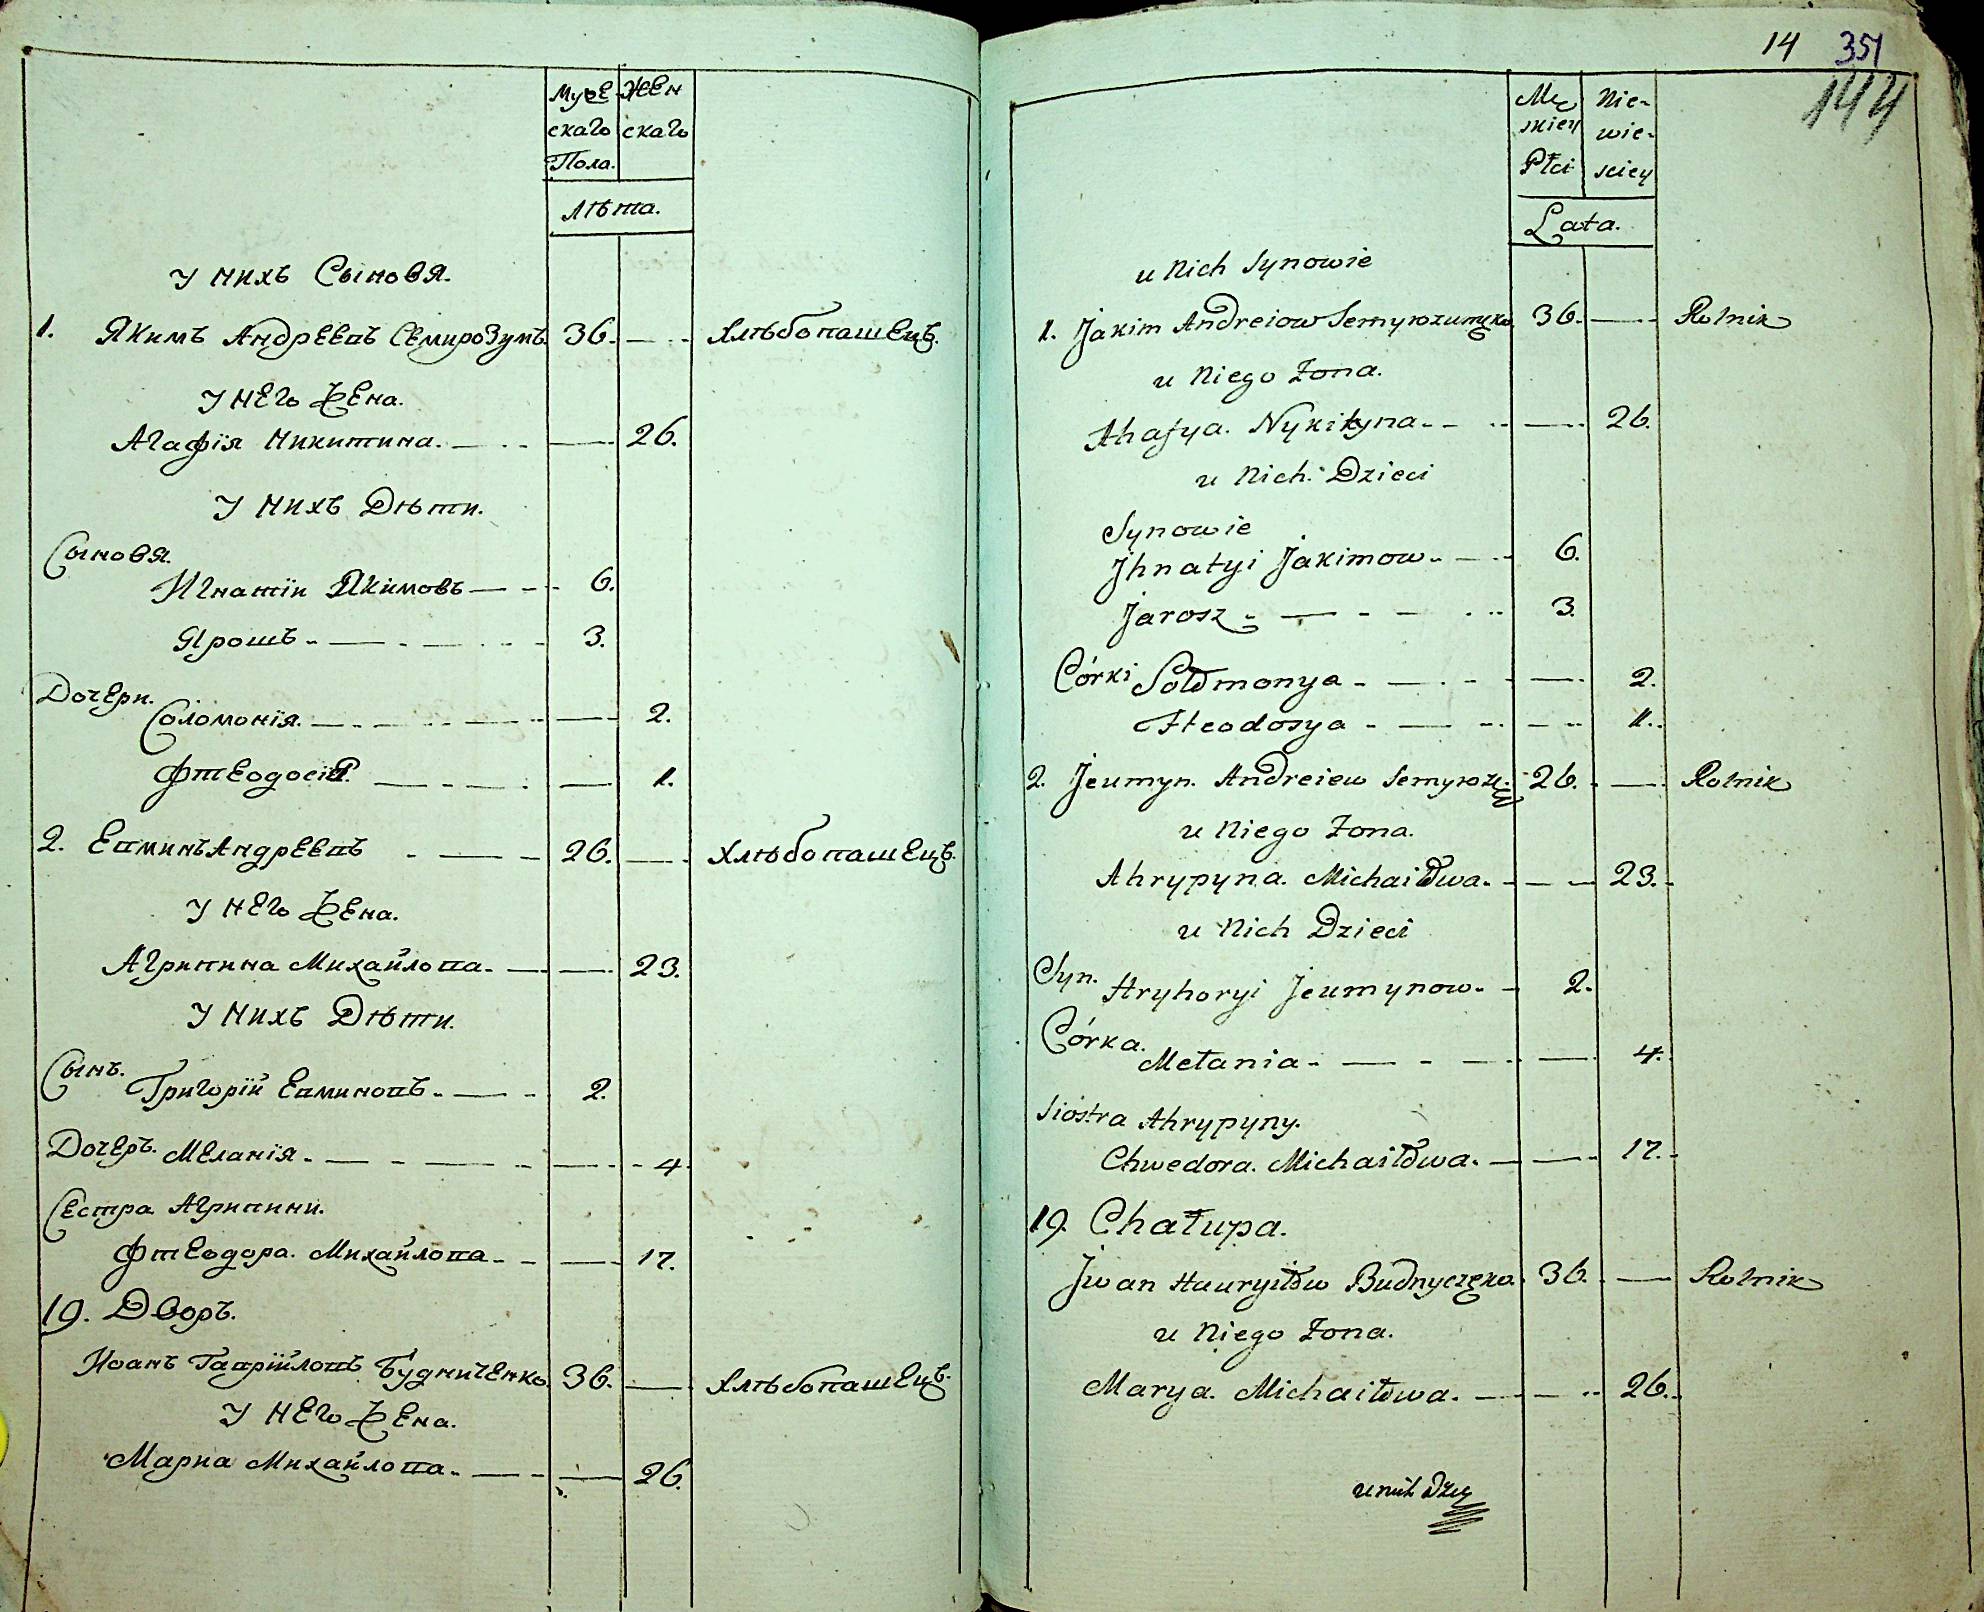 Муже Жен
скаго скаго
Пола.
Лѣта.
У нихъ Сыновя.
1. Якимъ Андреевъ Семирозумъ 36. Хлѣбопашецъ.
У него Жена.
Агафія Никитина. 26.
У нихъ Дѣти.
Сыновя.
Игнатіи Якимовъ 6.
Ярошъ 3.
Дочери.
Соломонія. 2.
Фтеодосія 1.
2. Евминъ Андреевъ 26. Хлѣбопашецъ.
У него Жена.
Агрипина Михайлова. 23.
У нихъ Дѣти.
Сынъ. Григорій Евминовъ. 2.
Дочеръ. Меланія. 4
Сестра Агрипини.
Фтеодора. Михайлова 17.
19. Дворъ.
Иоанъ Гаврійловъ Будниченко 36. Хлѣбопашецъ.
У него Жена.
Мариа Михайлова. 26.
14 351
144
Mę Nie-
skiey wie-
Płci sciey
Lata.
u Nich Synowie
1. Jakim Andreiow 36. Rolnik
u Niego Zona.
Ahafya. Nykityna 26.
u Nich Dzieci
Synowie
Jhnatyi Jakimow 6.
Jarosz 3.
Córki Sołomonya 2.
Fteodosya 1.
2. Jeumyn. Andreiew Semyroz. 26. Rolnik
u Niego Zona.
Ahrypyna. Michaiłowa. 23.
u Nich Dzieci
Syn. Hryhoryi Jeumynow 2.
Córka. Mełania 4.
Siostra Ahrypyny.
Chwedora. Michaiłowa. 17.
19. Chałupa.
Jwan Hauryiłow Budnyczęko. 36. Rolnik
u Niego Zona.
Marya. Michaiłowa. 26.
u nich